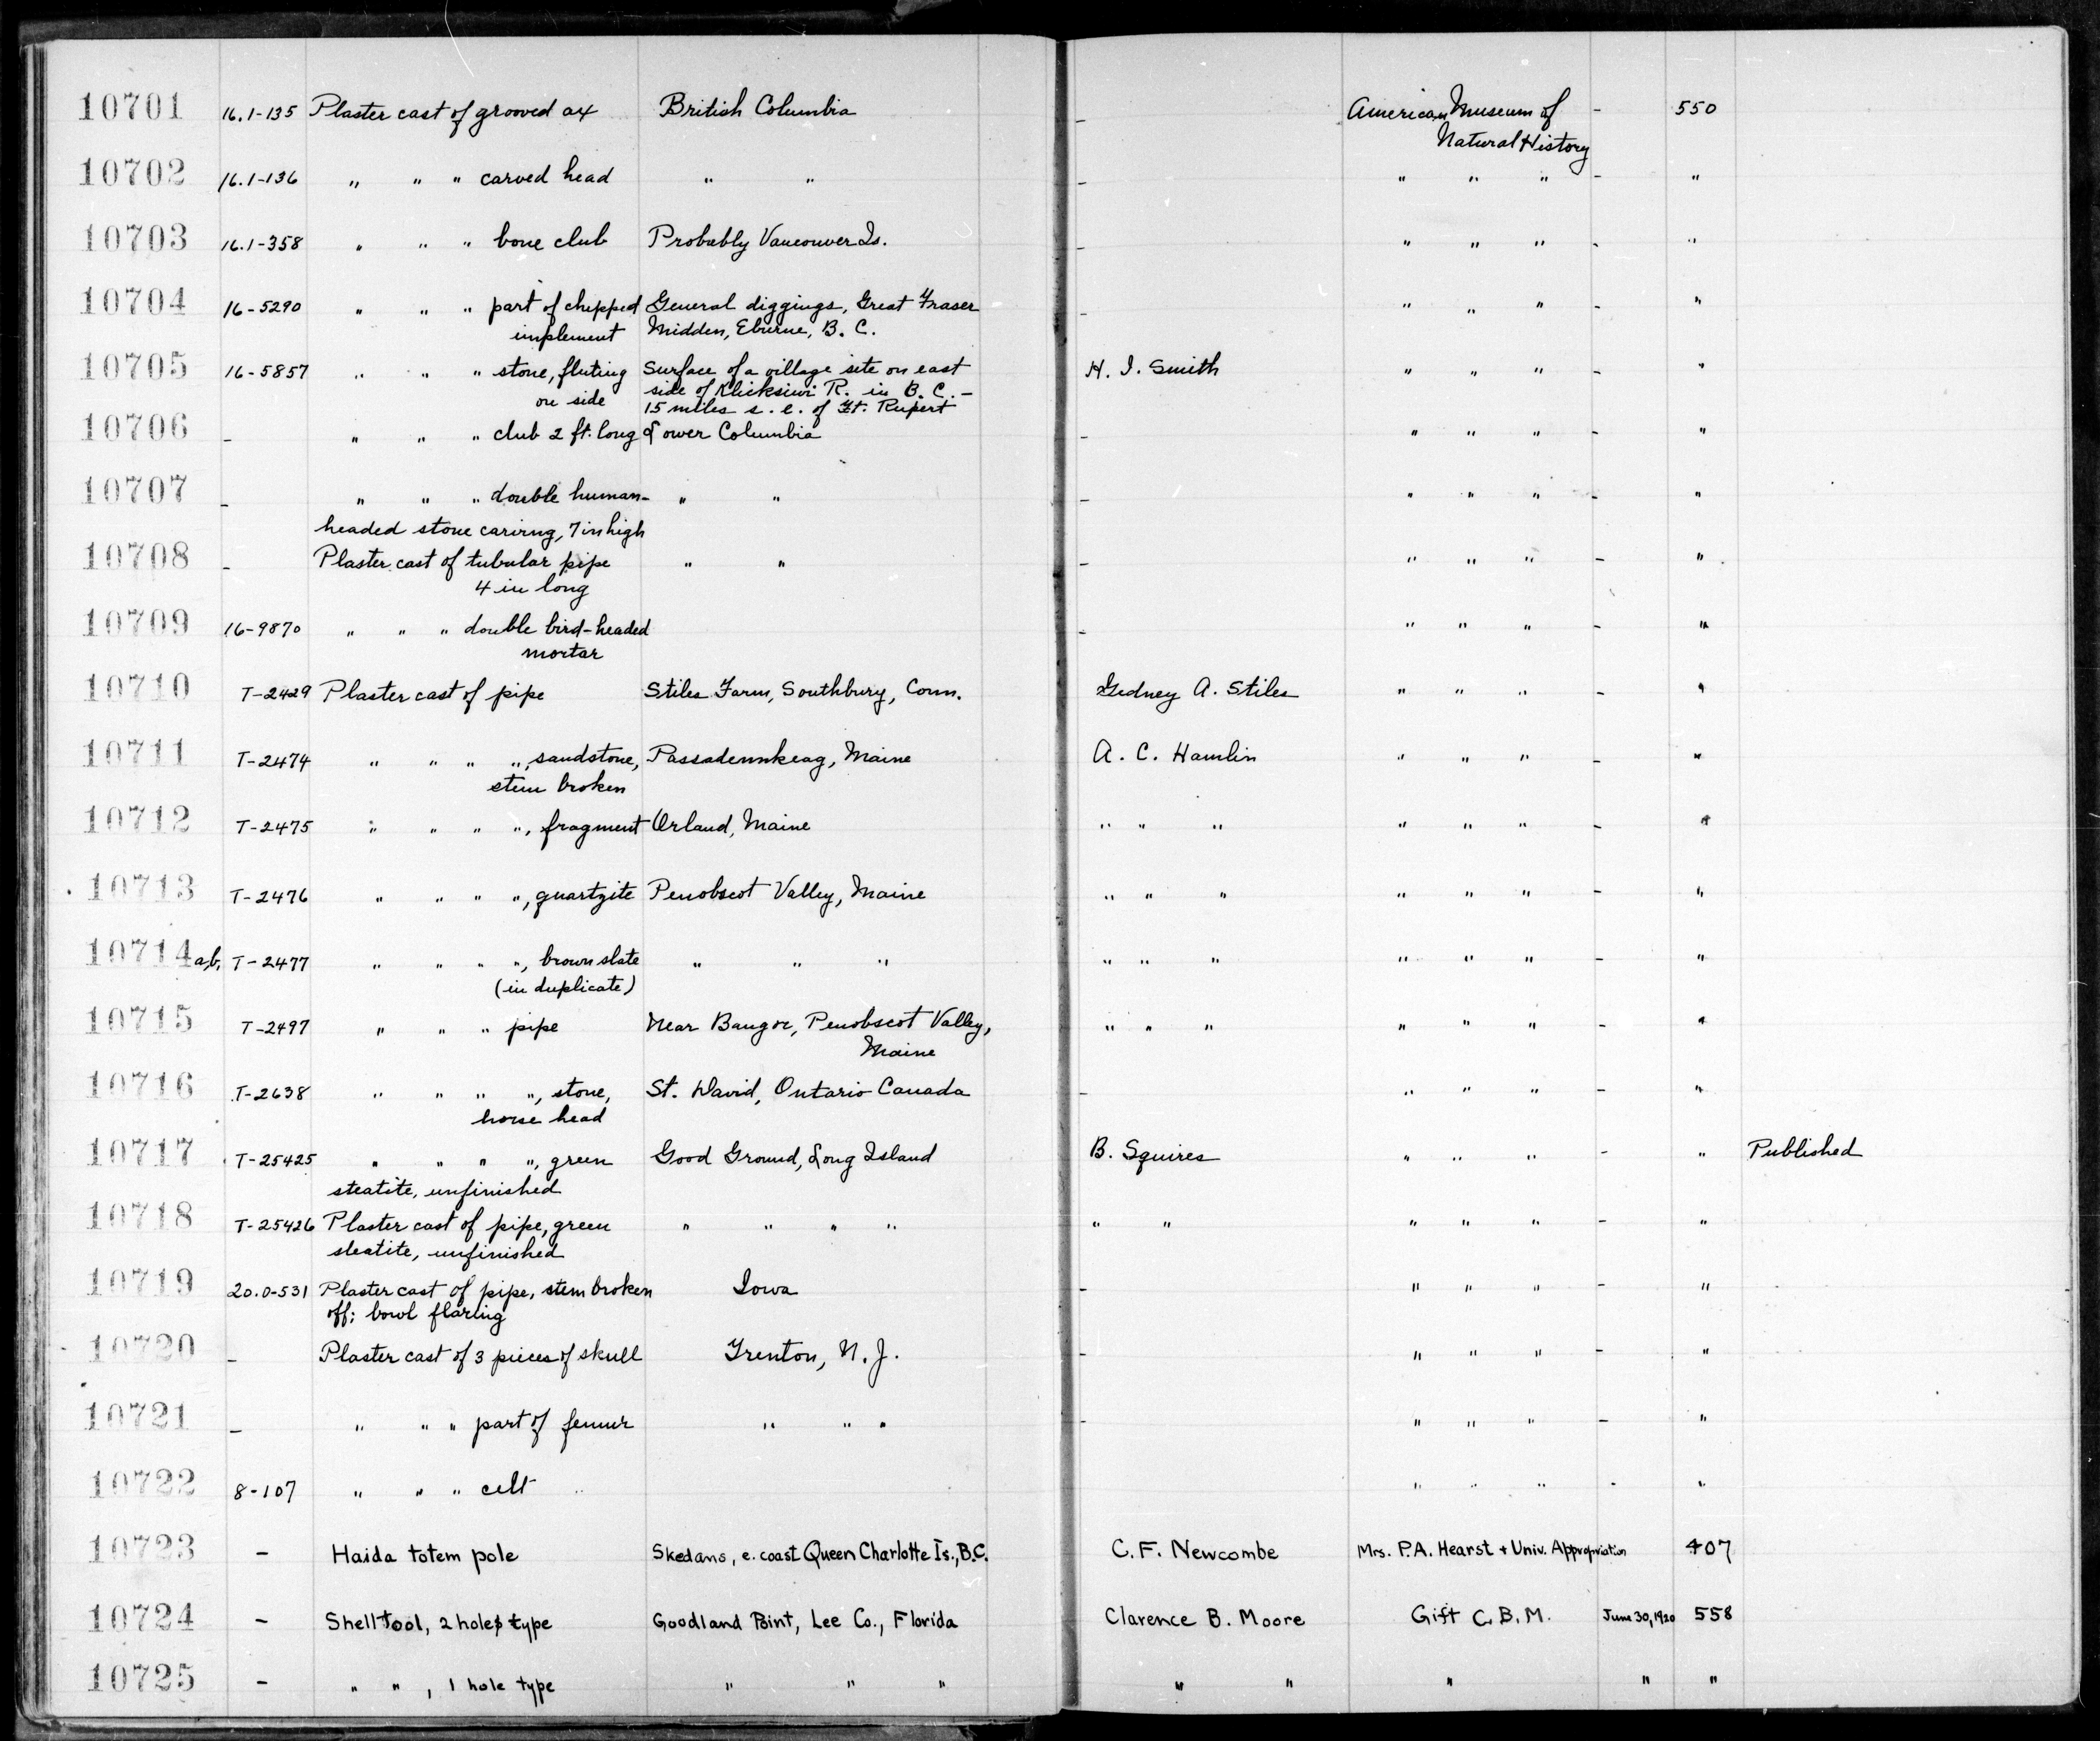 10701 16.1-135 Plaster cast of grooved ax British Columbia - American Museum of - 550
Natural History
10702 16.1-136 " " " carved head " " - " " " - "
10703 16.1-358 " " " bone club Probably Vancouver Is. - " " " - "
10704 16-5290 " " " part of chipped General diggings, Great Fraser - " " " - "
implement Midden, Eburne, B. C.
10705 16-5857 " " " stone, fluting Surface of a village site on east H. I. Smith " " " - "
on side side of Klicksiwi R. in B. C. -
15 miles s. e. of Ft. Rupert
10706 - " " " club 2 ft. long Lower Columbia - " " " - "
10707 - " " " double human- " " - " " " - "
headed stone carirng, 7 in high
10708 - Plaster cast of tubular pipe " " - " " " - "
4 in long
10709 16-9870 " " " double bird-headed - " " " - "
mortar
10710 T-2429 Plaster cast of pipe Stiles Farm, Southbury, Conn. Gedney A. Stiles " " " - "
10711 T-2474 " " " ", sandstone, Passadennkeag, Maine A. C. Hamlin " " " - "
stem broken
10712 T-2475 " " " ", fragment Orland, Maine " " " " " " - "
10713 T-2476 " " " ", quartzite Penobscot Valley, Maine " " " " " " - "
10714 a,b, T-2477 " " " ", brown slate " " " " " " " " " - "
(in duplicate)
10715 T-2497 " " " pipe Near Bangor, Penobscot Valley, " " " " " " - "
Maine
10716 T-2638 " " " ", stone, St. David, Ontario Canada - " " " - "
horse head
10717 T-25425 " " " ", green Good Ground, Long Island B. Squires " " " - " Published
steatite, unfinished
10718 T-25426 Plaster cast of pipe, green " " " " " " " " " - "
steatite, unfinished
10719 20.0-531 Plaster cast of pipe, stem broken Iowa - " " " - "
off; bowl flaring
10720 - Plaster cast of 3 pieces of skull Trenton, N. J. - " " " - "
10721 - " " " part of femur " " " - " " " - "
10722 8-107 " " " celt " " " - "
10723 - Haida totem pole Skedans, e. coast Queen Charlotte Is., B.C. C. F. Newcombe Mrs. P.A. Hearst + Univ. Appropriation 407
10724 - Shell tool, 2 holes type Goodland Point, Lee Co., Florida Clarence B. Moore Gift C.B.M. June 30, 1920 558
10725 - " " , 1 hole type " " " " " " " "